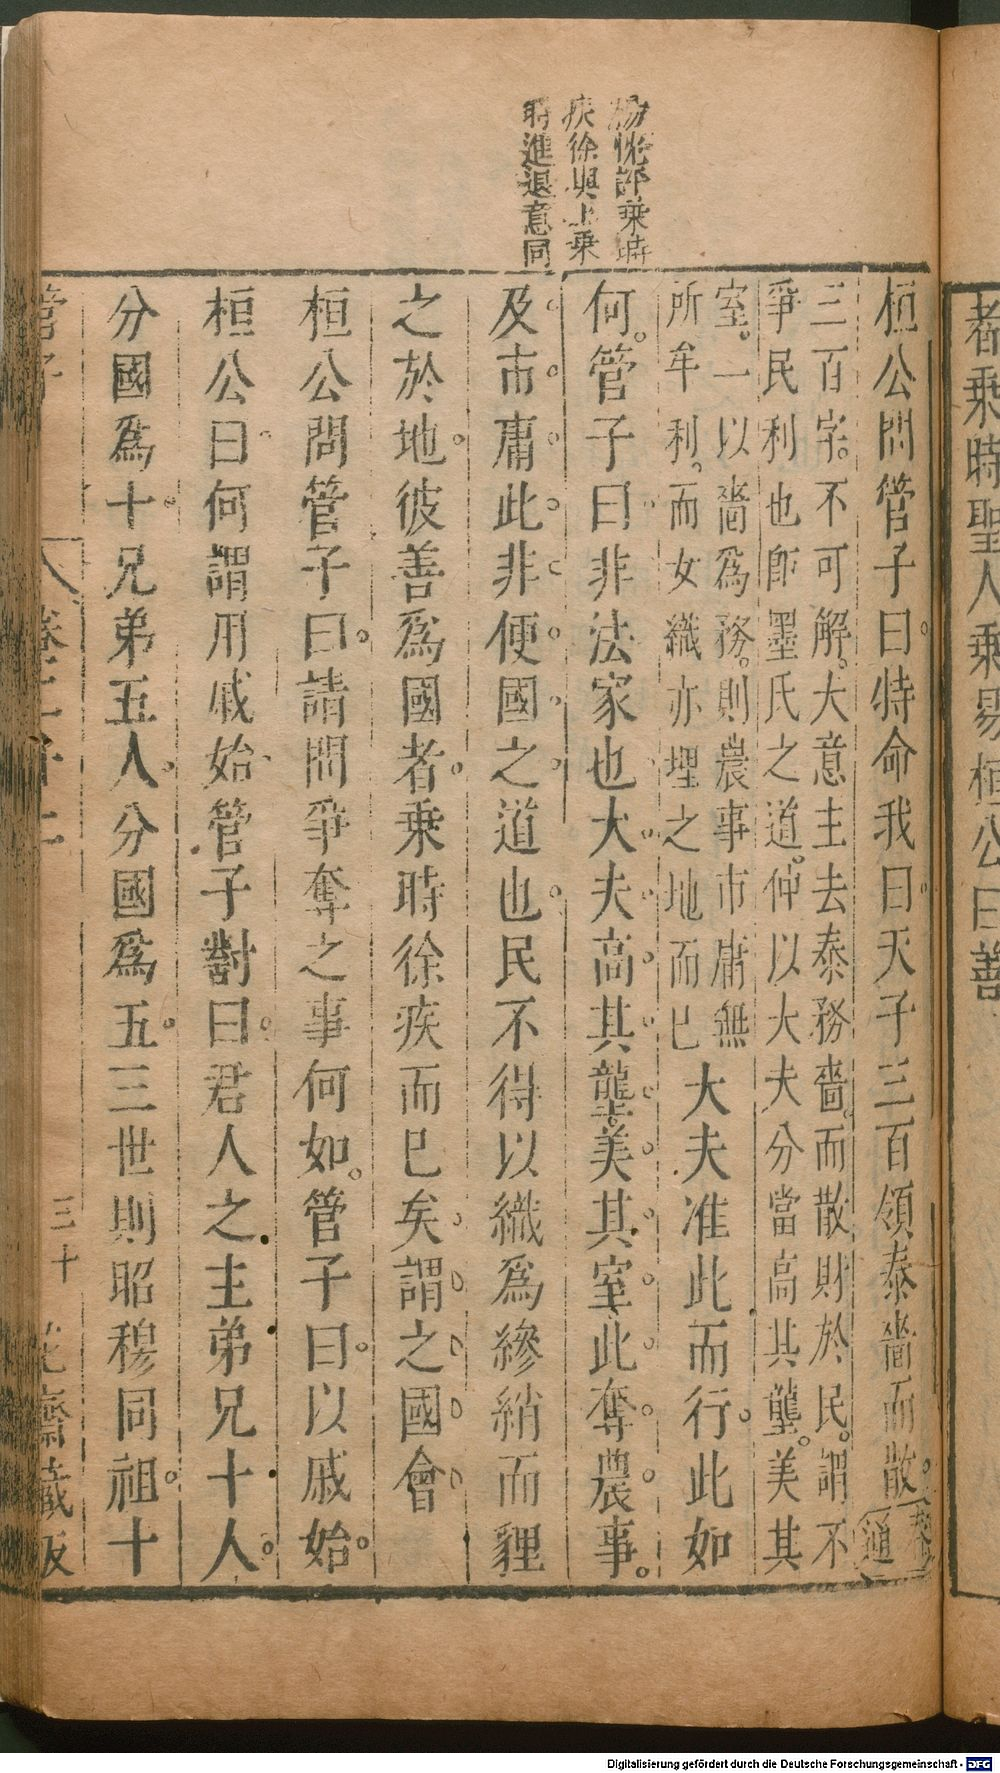 者乘時聖人乘易桓公曰善
時
疾徐與上乘
時進退意同
桓公問管子曰特命我曰天子三百領泰嗇而散
三百字不可解大意主去泰務嗇而散財於民謂不
爭民利也卽墨氏之道仲以大夫分當高其壟美其
室一以嗇爲務則農事市庸無
所牟利而女織亦埋之地而已
大夫准此而行此如
何管子曰非法家也大夫高其壟美其室此奪農事
及市庸此非便國之道也民不得以織爲縿綃而貍
之於地彼善爲國者乘時徐疾而已矣謂之國會
桓公問管子曰請問爭奪之事何如管子曰以戚始
桓公曰何謂用戚始管子對曰君人之主弟兄十人
分國爲十兄弟五人分國爲五三世則昭穆同祖十
管子
三十
花齋藏板
Digitalisierung gefördert durch die Deutsche Forschungsgemeinschaft - DFG